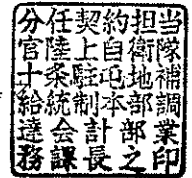 分任契約担当
官陸上自衛隊
十条駐屯地補
給統制本部調
達会計部業
務課長之印